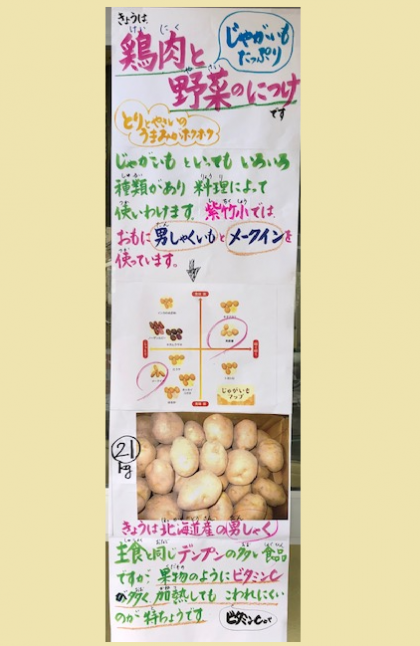 きょうは、
鶏肉と
じゃがいも
たっぷり
野菜のにつけ
です
とりとやさいの
うまみがホクホク
じゃがいもといっても いろいろ
種類があり 料理によって
使いわけます。紫竹小では、
おもに男しゃくいもとメークインを
使っています。
じゃがいも
マップ
21
kg
きょうは北海道産の男しゃく
主食と同じデンプンの多い食品
ですが、果物のようにビタミンC
が多く、加熱しても こわれにくい
のが特ちょうです